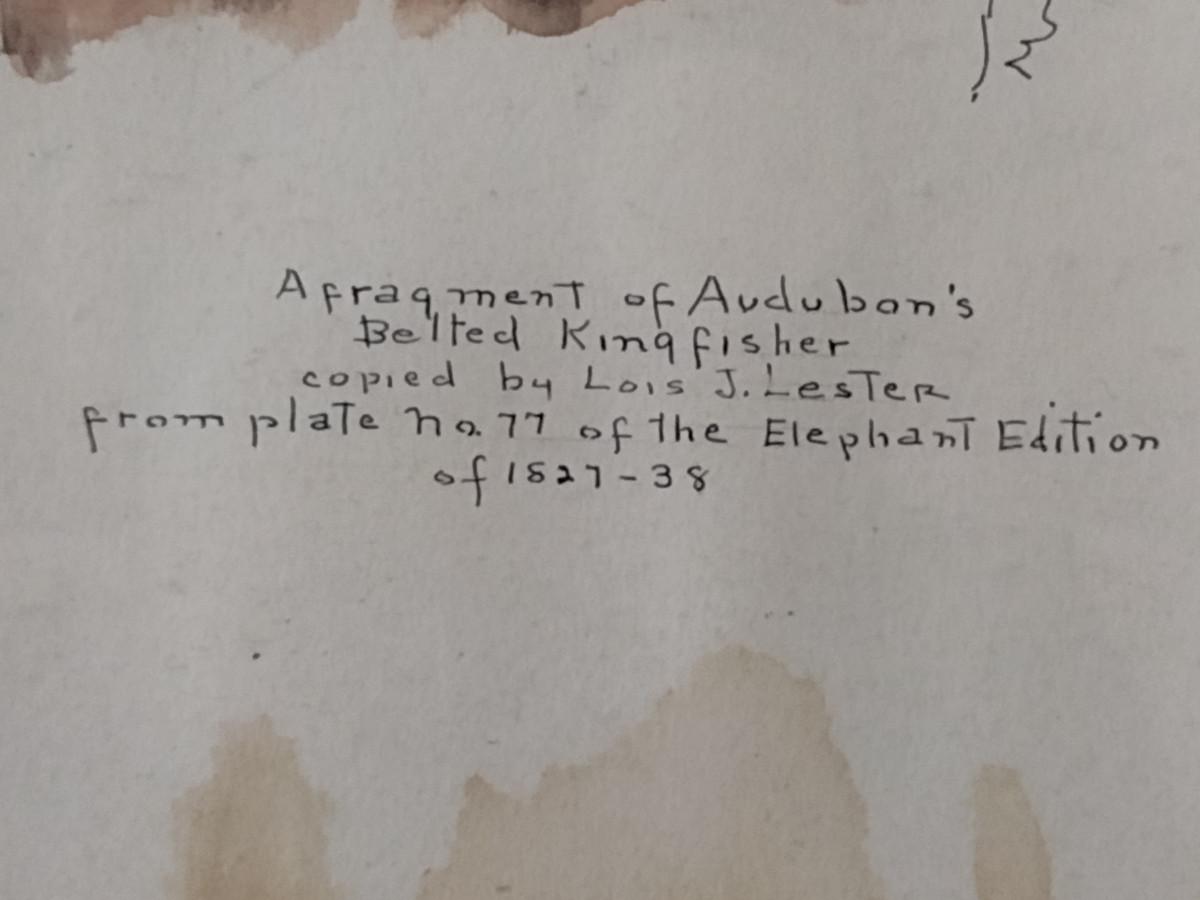 A fragment of Audubon's
Belted Kingfisher
copied by Lois J. Lester
from plate no. 77 of the Elephant Edition
of 1827-38